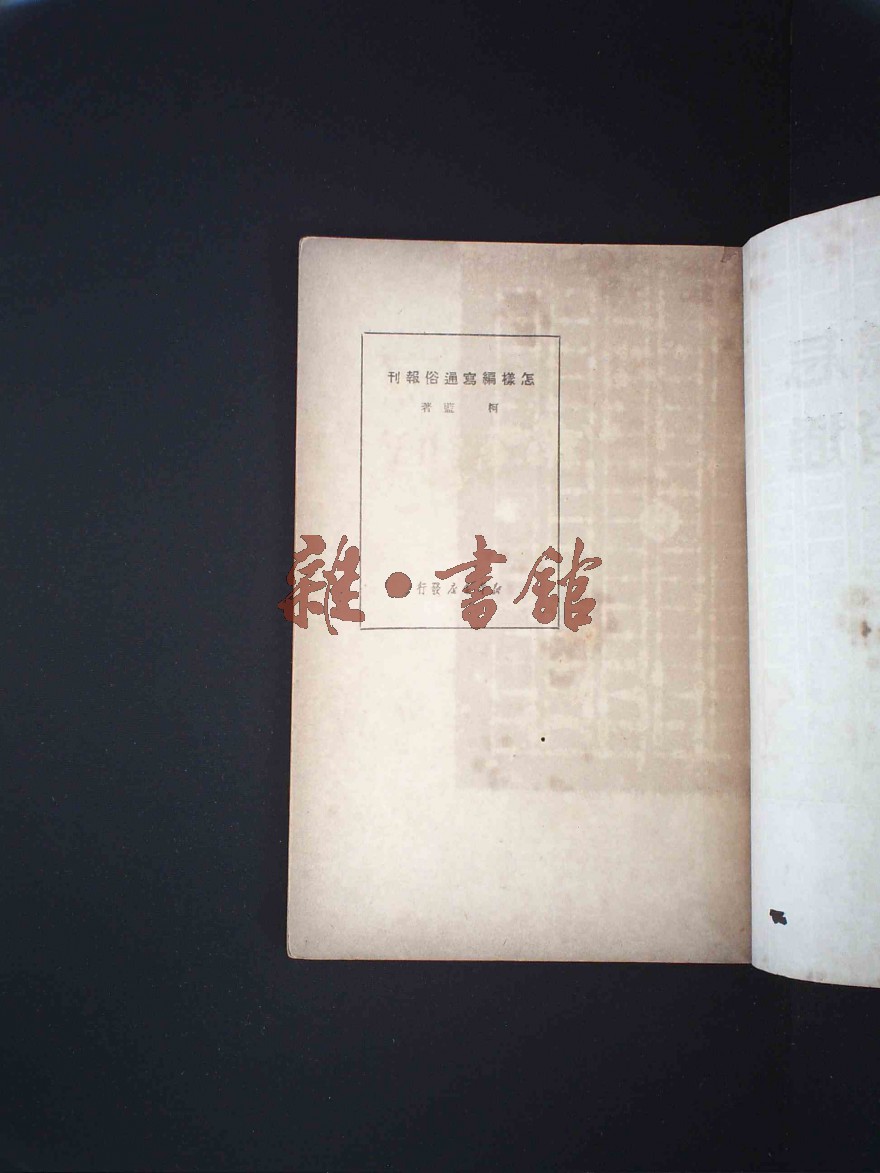 怎樣編寫通俗報刊
柯藍著
店發行
雜·書館